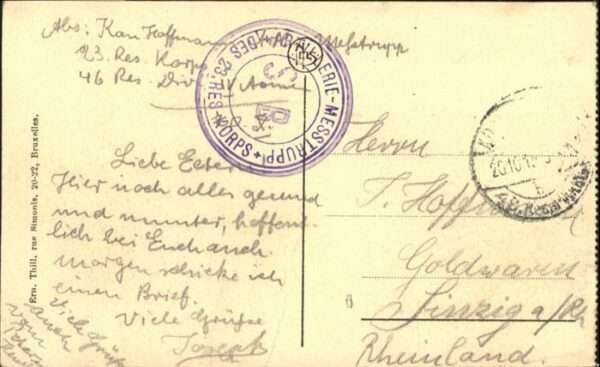 Abs: Hoffmann
23. Res. Korps
46 Res. Div.
ARTILLERIE-MESSTRUPP
DES 23. RES. KORPS
Liebe Eltern
Hier noch alles gesund
und munter, hoffent
lich bei Euch auch.
Morgen schicke ich
einen Brief.
Viele Grüße
Joseph
Viele Grüße
auch
vom
Herrn
J. Hoffmann
Goldwaren
Sinzig a/Rh
Rheinland.
20.10.1
Ern. Thill, rue Simonis, 20-22, Bruxelles.